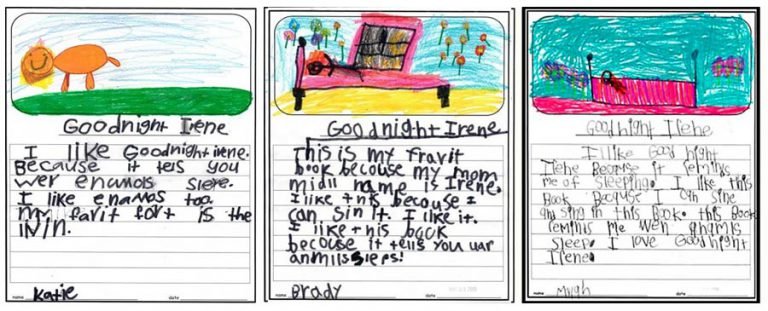 Goodnight Irene
I like Goodnight irene.
Because it tells you
wer enamols sleve.
I like enamols too.
my favrit fort is the
livin.
name Katie date
Goodnight Irene
This is my fravit
book becouse my mom
midll name is Irene.
I like this becouse I
can sin it. I like it.
I like this back
becouse it tells you uar
anmils sleps!
name Brady date
Goodnight Irene
I like Good night
Irene Because it remins
me of sleeping. I like this
Book Becaquse I can sine
sing in this Book. this Book
reminis me wen
sleep. I love Goodnight
Irene.
name date